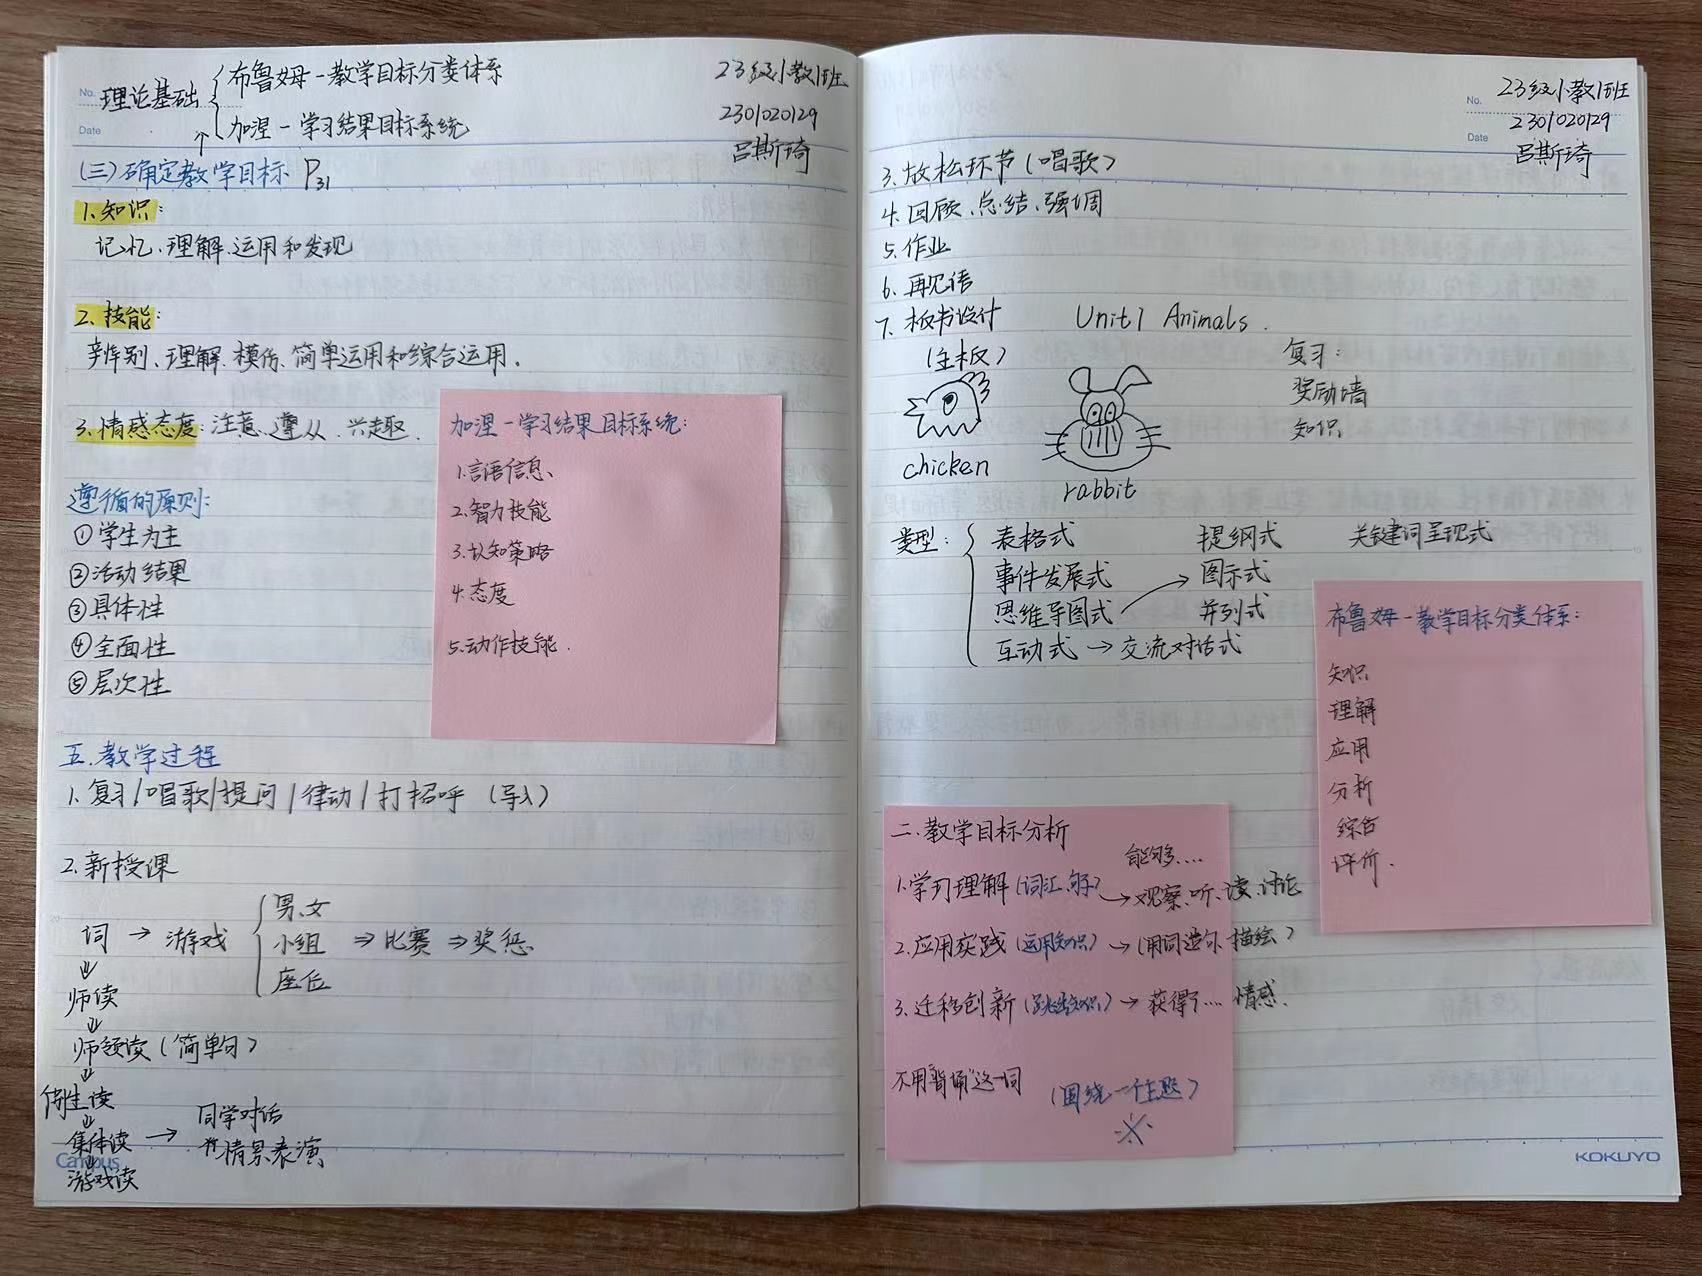 No.
Date
理论基础
布鲁姆-教学目标分类体系
加涅-学习结果目标系统
23级小教1班
2301020129
吕斯琦
(三)确定教学目标 P31
1.知识:
记忆、理解、运用和发现
2.技能:
辨别、理解、模仿、简单运用和综合运用.
3.情感态度:注意、遵从、兴趣.
遵循的原则:
①学生为主
②活动结果
③具体性
④全面性
⑤层次性
加涅-学习结果目标系统:
1.言语信息、
2.智力技能
3.认知策略
4.态度
5.动作技能.
五.教学过程
1.复习/唱歌/提问/律动/打招呼(导入)
2.新授课
词→游戏
男、女
小组
座位
⇒比赛⇒奖惩
师读
师领读(简单句)
生读
集体读→同学对话
情景表演
游戏读
Campus
No.
Date
23级小教1班
2301020129
吕斯琦
3.放松环节(唱歌)
4.回顾、总结、强调
5.作业
6.再见语
7.板书设计
(主板)
Unit1 Animals.
复习:
奖励墙
知识
chicken
rabbit
类型:
表格式 提纲式 关键词呈现式
事件发展式 图示式
思维导图式 并列式
互动式→交流对话式
布鲁姆-教学目标分类体系:
知识
理解
应用
分析
综合
评价.
二.教学目标分析
能够....
1.学习理解(词汇、句)→观察、听、读、讨论
2.应用实践(运用知识)→(用词造句、描绘)
3.迁移创新(知识)→获得了....情感.
不用"背诵"这一词
(围绕一个主题)
※
KOKUYO